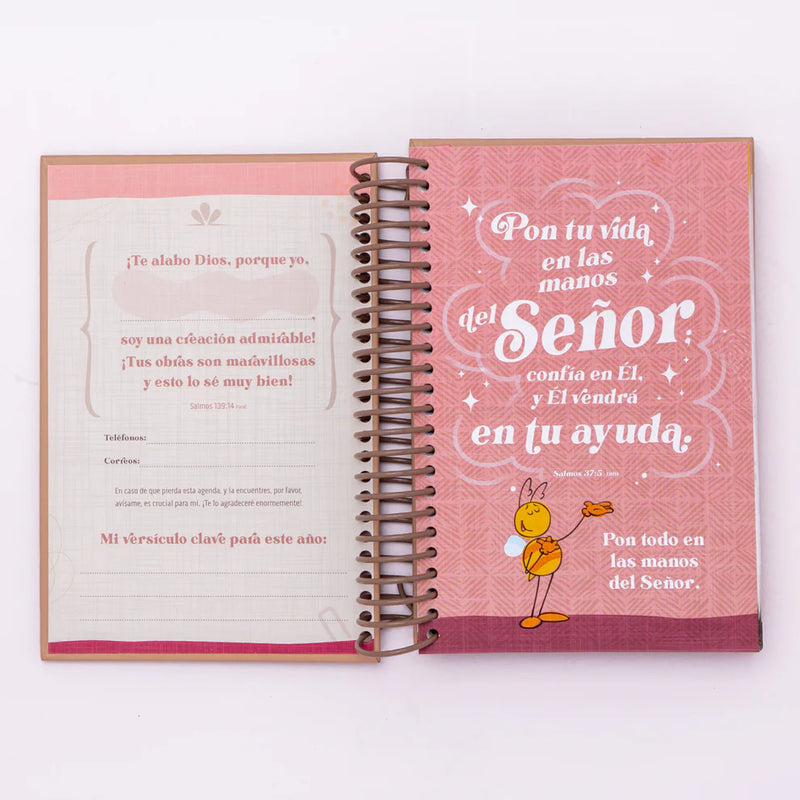 ¡Te alabo Dios, porque yo,
,
soy una creación admirable!
¡Tus obras son maravillosas
y esto lo sé muy bien!
Salmos 139:14
Teléfonos:
Correos:
En caso de que pierda esta agenda, y la encuentres, por favor,
avísame, es crucial para mi. ¡Te lo agradeceré enormemente!
Mi versículo clave para este año:
Pon tu vida
en las
manos
del Señor;
confía en Él,
y Él vendrá
en tu ayuda.
Salmos 37:5
Pon todo en
las manos
del Señor.